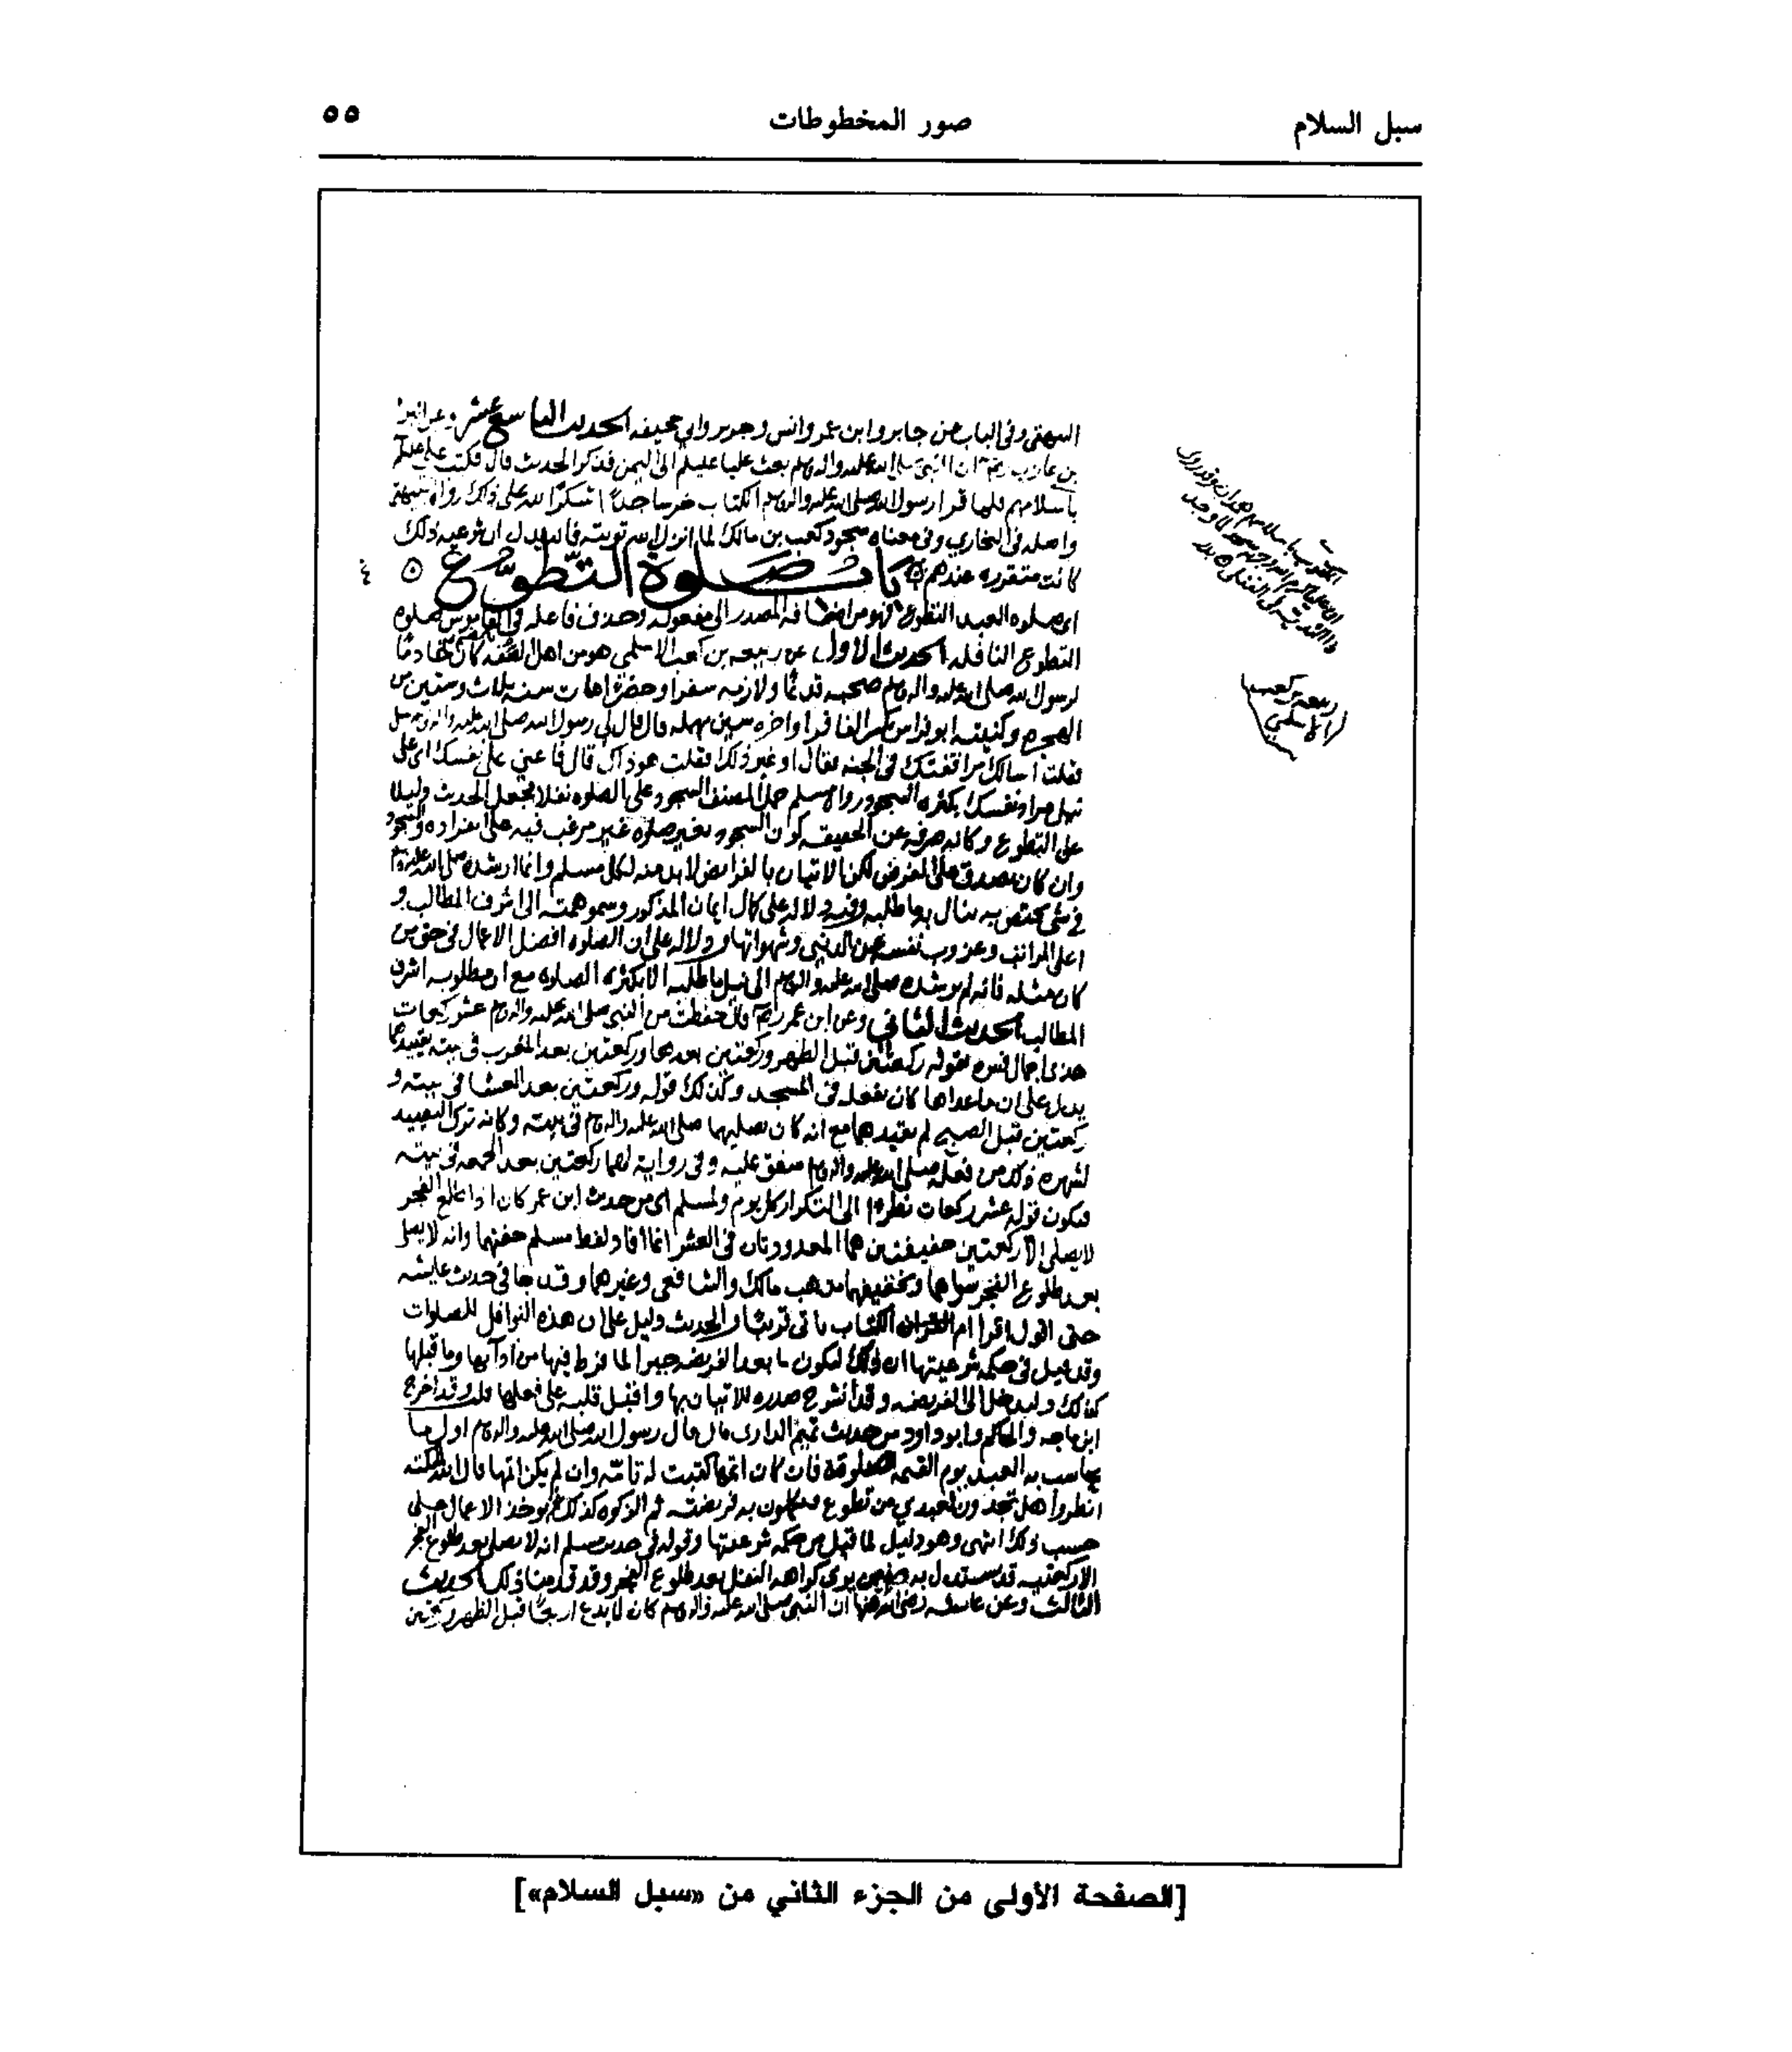 سبل السلام
صور المخطوطات
٥٥
البيهقي وفي الباب عن جابر وابن عمر وانس وجرير وابي جحيفه الحديث التاسع عشر وعن البرا
بن عازب رضي ان النبي صلى الله عليه واله وسلم بعث عليا عليلم الى اليمن فذكر الحديث قال فكتب علي عليلم
باسلامهم فلما قرا رسول الله صلى الله عليه واله وسلم الكتاب خر ساجداً شكراً لله على ذلك رواه البيهقي
واصله في البخاري وفي معناه سجود كعب بن مالك لما انزل الله توبته فانه يدل ان شرعيه ذلك
كانت متقرره عندهم باب صلوة التطوع
اي صلوه العبد التطوع فهو من اضافه المصدر الى مفعوله وحذف فاعله في القاموس صلوه
التطوع النافله الحديث الاول عن ربيعه بن كعب الاسلمي هو من اهل الصفه كان خادمًا
لرسول الله صلى الله عليه واله وسلم صحبه قديمًا ولازمه سفرا وحضرا مات سنه ثلاث وستين من
الهجره وكنيته ابو فراس بكسر الفا فرا واخره سين مهمله قال قال لي رسول الله صلى الله عليه واله وسلم سل
فقلت اسالك مرافقتك في الجنه فقال او غير ذلك فقلت هو ذاك قال فاعني على نفسك اي على
نيل مراد نفسك بكثره السجود رواه مسلم حمل المصنف السجود على الصلوه نفلا فجعل الحديث دليلا
على التطوع وكانه صرفه عن الحقيقه كون السجود بغير صلوه غير مرغب فيه على انفراده والسجود
وان كان يصدق على الفرض لكن الاتيان بالفرايض لا بد منه لكل مسلم وانما ارشده صلى الله عليه واله وسلم
في شي يختص به ينال به ما طلبه وفيه دلاله على كمال ايمان المذكور وسمو همته الى اشرف المطالب و
اعلى المراتب وعزوب نفسه عن الدنيى وشهواتها ودلاله على ان الصلوه افضل الاعمال في حق من
كان مثله فانه لم يرشده صلى الله عليه واله وسلم الى نيل ما طلبه الا بكثره الصلوه مع ان مطلوبه اشرف
المطالب الحديث الثاني وعن ابن عمر رضي قال حفظت من النبي صلى الله عليه واله وسلم عشر ركعات
هذا اجمال فسره بقوله ركعتين قبل الظهر وركعتين بعدها وركعتين بعد المغرب في بيته تقييدها
يدل على ان ما عداها كان يفعله في المسجد وكذلك قوله وركعتين بعد العشا في بيته و
ركعتين قبل الصبح لم يقيدهما مع انه كان يصليهما صلى الله عليه واله وسلم في بيته وكانه ترك التقييد
لشهره ذلك من فعله صلى الله عليه واله وسلم متفق عليه وفي رواية لهما ركعتين بعد الجمعه في بيته
فيكون قوله عشر ركعات نظرا الى التكرار كل يوم ولمسلم اي من حديث ابن عمر كان اذا طلع الفجر
لا يصلي الا ركعتين خفيفتين هما المعدودتان في العشر انما افاد لفظ مسلم خفتهما وانه لا يصلى
بعد طلوع الفجر سواهما وتخفيفهما مذهب مالك والشافعي وغيرهما وقد جا في حديث عايشه
حتى اقول اقرا ام الكتاب ياتي قريبا والحديث دليل على ان هذه النوافل للصلوات
وقد قيل في حكمه شرعيتها ان ذلك ليكون ما بعد الفريضه جبرا لما فرط فيها من آدابها وما قبلها
كذلك وليدخل الى الفريضه وقد انشرح صدره للاتيان بها واقبل قلبه على فعلها قلت وقد اخرج
ابن ماجه والحاكم وابو داود من حديث تميم الداري قال قال رسول الله صلى الله عليه واله وسلم اول ما
يحاسب به العبد يوم القيمه صلوته فان كان اتمها كتبت له تامّه وان لم يكن اتمها قال الله لملائكته
انظروا هل تجدون لعبدي من تطوع فتكملون به فريضته ثم الزكوه كذلك ثم تؤخذ الاعمال على
حسب ذلك انتهى وهو دليل لما قيل من حكمه شرعيتها وقوله في حديث مسلم انه لا يصلي بعد طلوع الفجر
الا ركعتيه قد يستدل به من يرى كراهه النفل بعد طلوع الفجر وقد قدمنا ذلك الحديث
الثالث وعن عايشه رضي الله عنها ان النبي صلى الله عليه واله وسلم كان لا يدع اربعًا قبل الظهر وركعتين
ربيعه بن كعب
الاسلمي
[الصفحة الأولى من الجزء الثاني من «سبل السلام»]